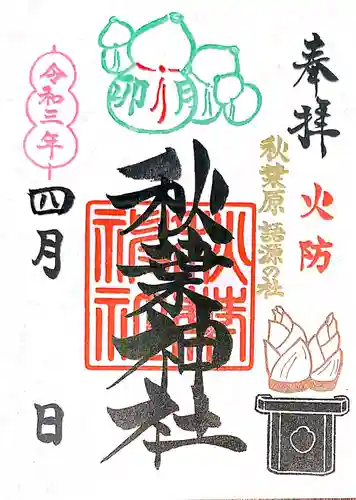 奉拝
火防
秋葉原 語源の社
卯月
秋葉神社
令和三年
四月
日